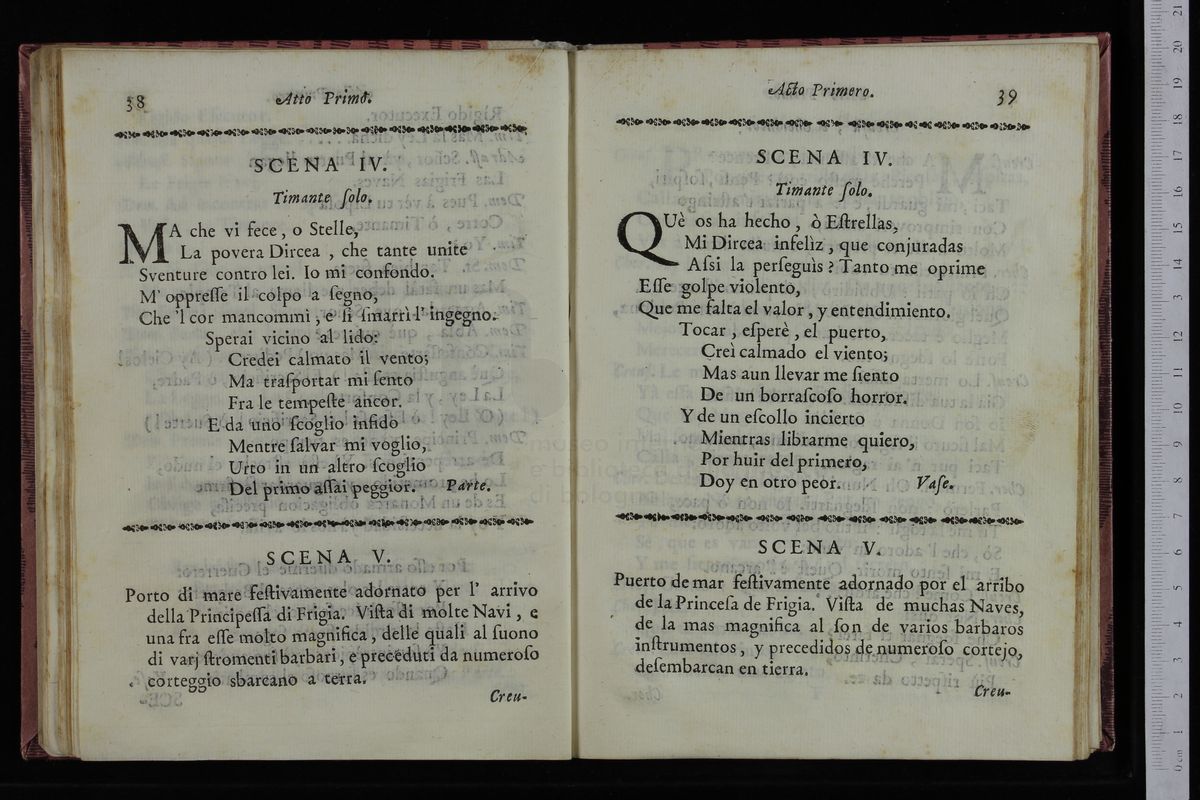 38
Atto Primo.
SCENA IV.
Timante ſolo.
MA che vi fece, o Stelle,
La povera Dircea, che tante unite
Sventure contro lei. Io mi confondo.
M' oppreſſe il colpo a ſegno,
Che 'l cor mancommi, e ſi ſmarrì l' ingegno.
Sperai vicino al lido:
Credei calmato il vento;
Ma traſportar mi ſento
Fra le tempeſte ancor.
E da uno ſcoglio infido
Mentre ſalvar mi voglio,
Urto in un altro ſcoglio
Del primo aſſai peggior. Parte.
SCENA V.
Porto di mare feſtivamente adornato per l' arrivo
della Principeſſa di Frigia. Viſta di molte Navi, e
una fra eſſe molto magnifica, delle quali al ſuono
di varj ſtromenti barbari, e preceduti da numeroſo
corteggio sbarcano a terra.
Creu-
Acto Primero.
39
SCENA IV.
Timante ſolo.
QUè os ha hecho, ò Eſtrellas,
Mi Dircea infelìz, que conjuradas
Aſsi la perſeguìs? Tanto me oprime
Eſſe golpe violento,
Que me falta el valor, y entendimiento.
Tocar, eſperè, el puerto,
Creì calmado el viento;
Mas aun llevar me ſiento
De un borraſcoſo horror.
Y de un eſcollo incierto
Mientras librarme quiero,
Por huir del primero,
Doy en otro peor. Vaſe.
SCENA V.
Puerto de mar feſtivamente adornado por el arribo
de la Princeſa de Frigia. Viſta de muchas Naves,
de la mas magnifica al ſon de varios barbaros
inſtrumentos, y precedidos de numeroſo cortejo,
deſembarcan en tierra.
Creu-